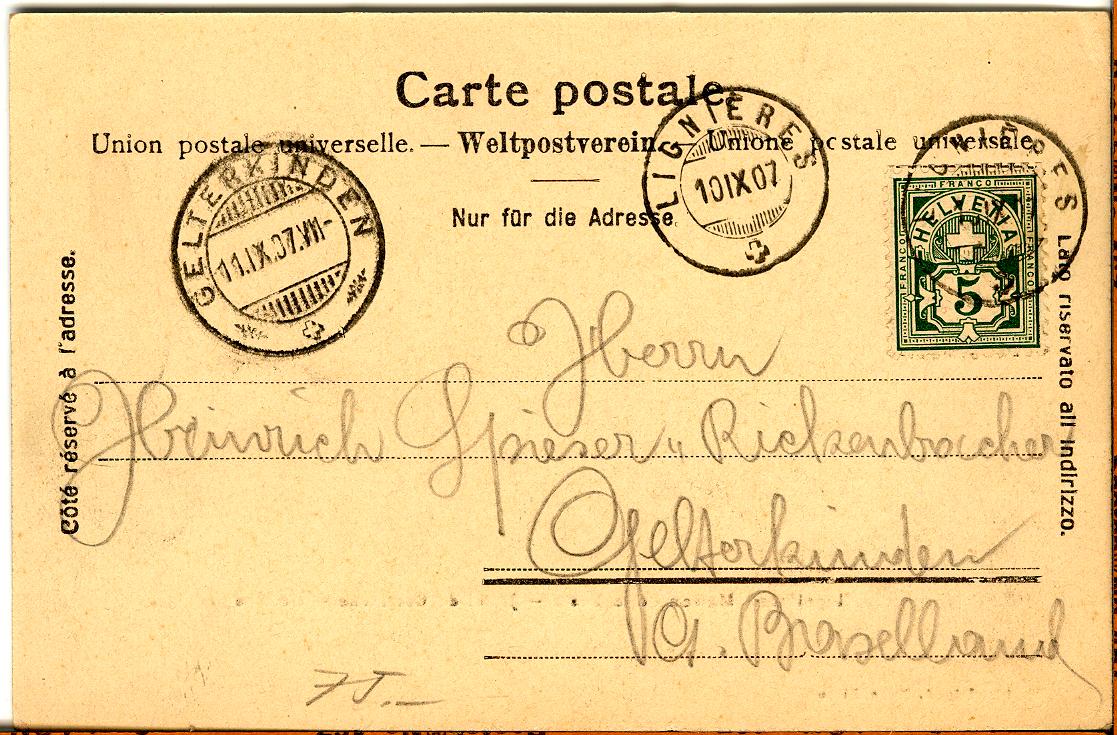 Carte postale.
Union postale universelle. — Weltpostverein. — Unione postale universale.
Nur für die Adresse.
Côté réservé à l'adresse.
Lato riservato all'indirizzo.
GELTERKINDEN
11.IX.07.VII-
LIGNIÈRES
10 IX 07
LIGNIÈRES
FRANCO
HELVETIA
FRANCO
FRANCO
5
Herrn
Heinrich Spieser-Rickenbacher
Gelterkinden
Ct. Baselland
75.-